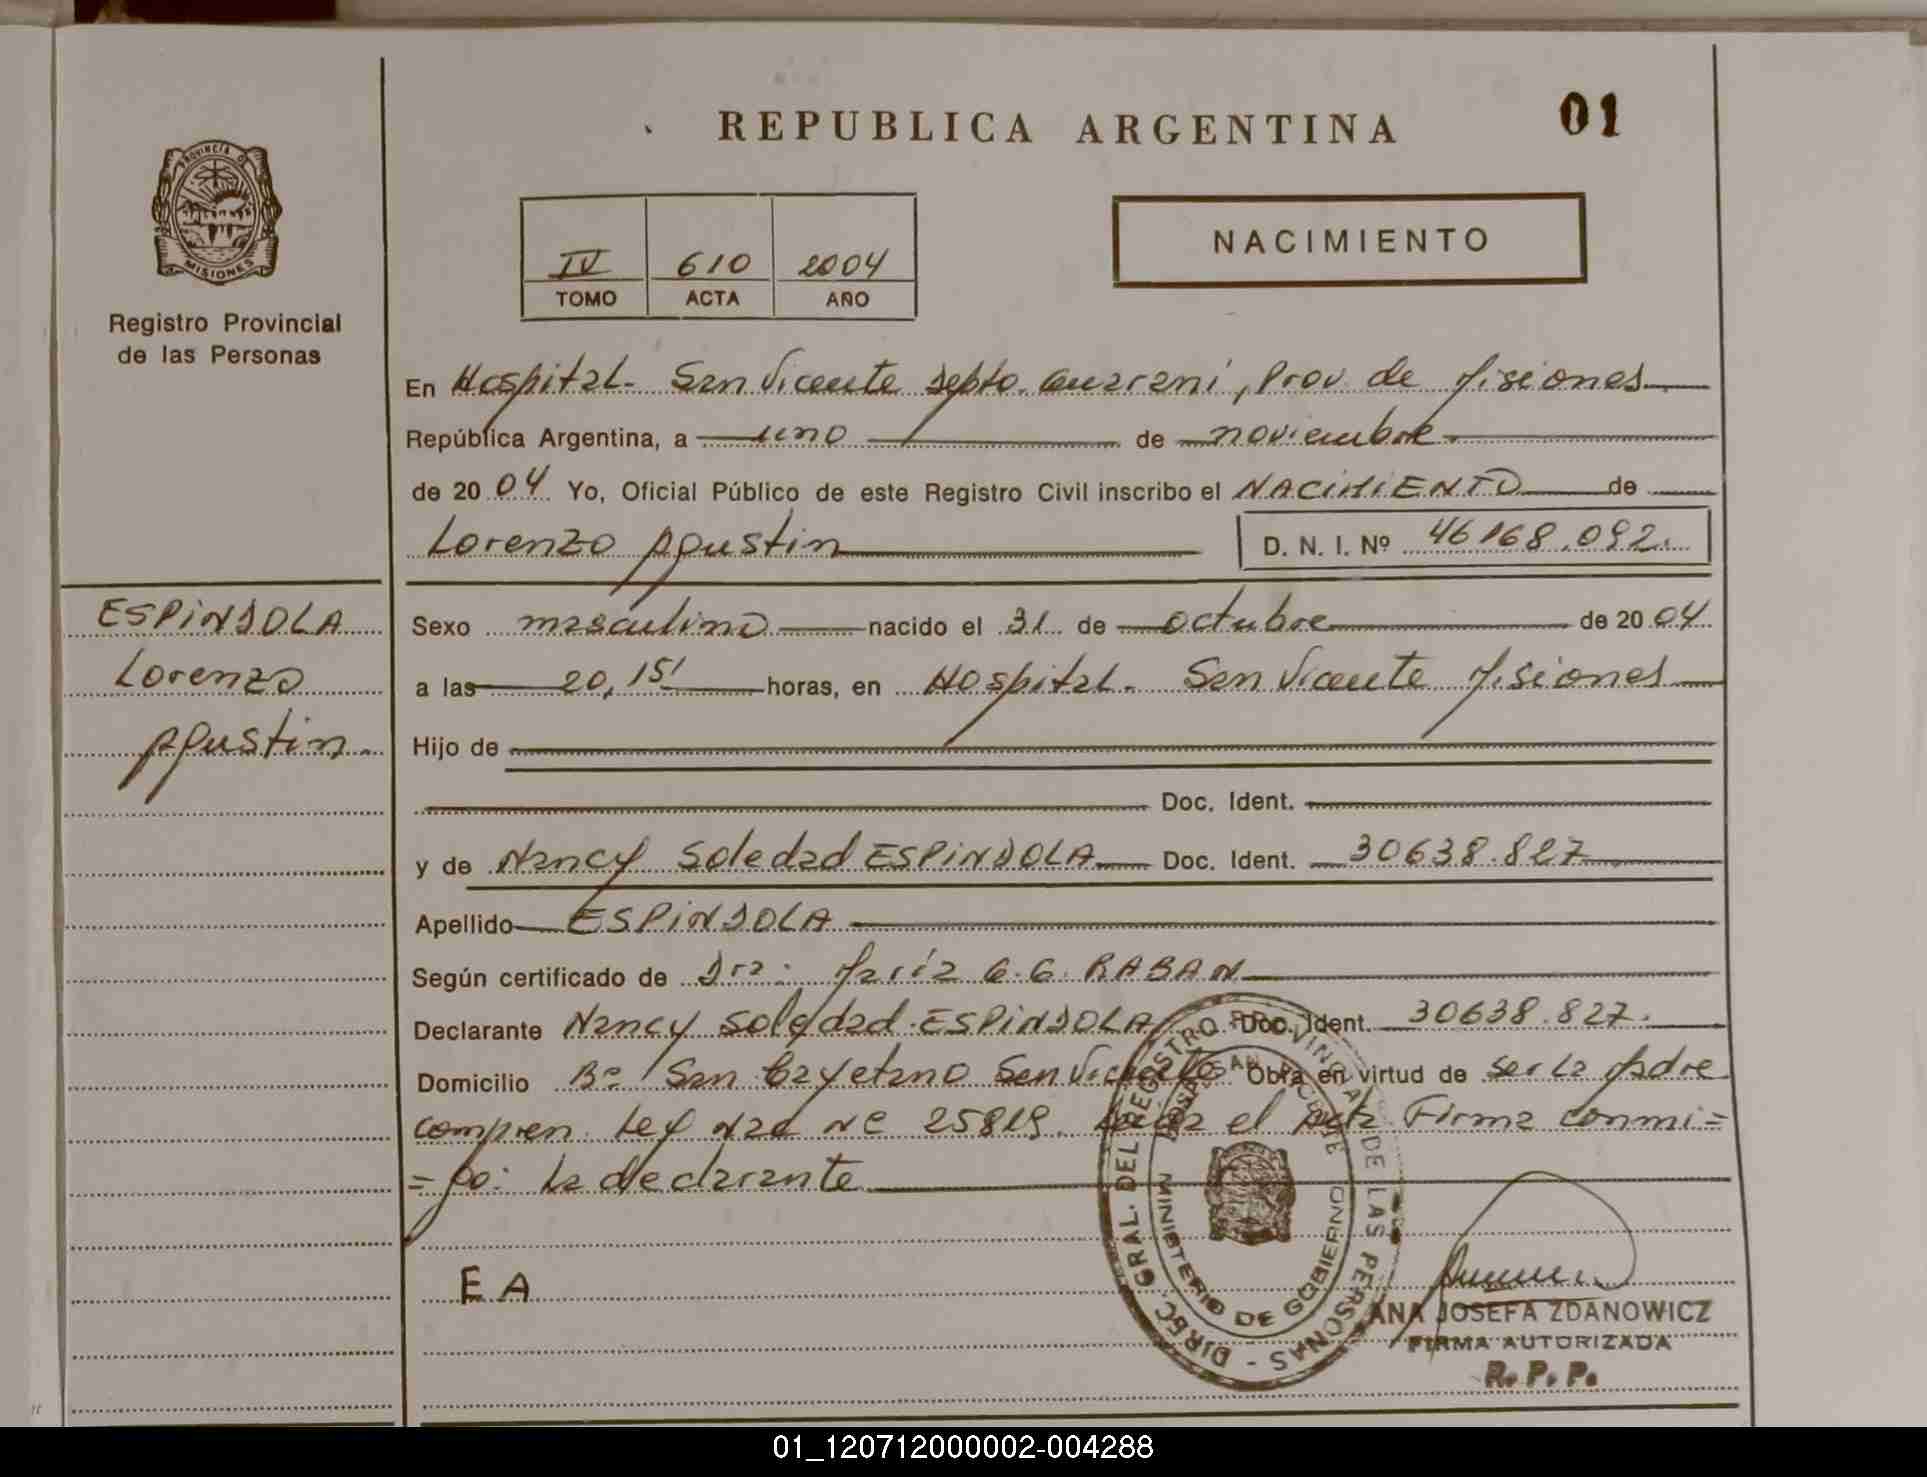 REPUBLICA ARGENTINA
01
PROVINCIA DE
MISIONES
Registro Provincial
de las Personas
IV 610 2004
TOMO ACTA AÑO
NACIMIENTO
En Hospital- San Vicente Depto. Guarani, Prov. de Misiones
República Argentina, a uno de noviembre
de 2004 Yo, Oficial Público de este Registro Civil inscribo el NACIMIENTO de
Lorenzo Agustin
D. N. I. Nº 46168.092.
ESPINDOLA
Lorenzo
Agustin.
Sexo masculino nacido el 31 de octubre de 2004
a las 20,15' horas, en Hospital- San Vicente Misiones
Hijo de
Doc. Ident.
y de Nancy Soledad ESPINDOLA Doc. Ident. 30638.827
Apellido ESPINDOLA
Según certificado de Dra. María G.G. RABAN
Declarante Nancy Soledad ESPINDOLA Doc. Ident. 30638.827.
Domicilio Bº San Cayetano San Vicente Obra en virtud de ser la Madre
compren. Ley Nº 25819. el Acta Firma conmi=
=go: La declarante
EA
DIREC. GRAL. DEL REGISTRO PROVINCIAL DE LAS PERSONAS -
MINISTERIO DE GOBIERNO
ANA JOSEFA ZDANOWICZ
FIRMA AUTORIZADA
R. P. P.
01_120712000002-004288